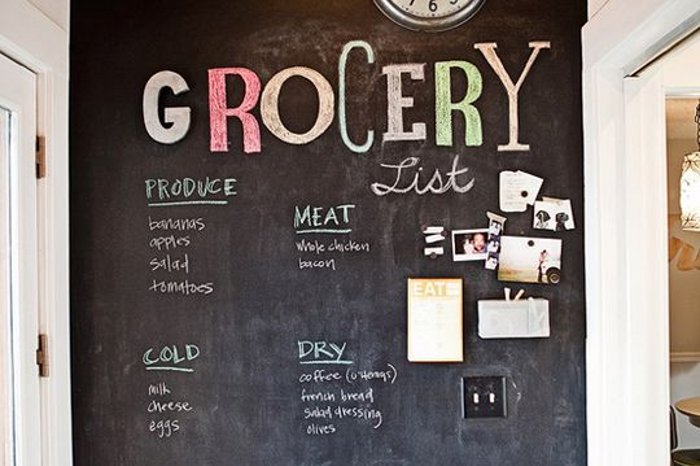 GROCERY
List
PRODUCE
bananas
apples
salad
tomatoes
MEAT
whole chicken
bacon
COLD
milk
cheese
eggs
DRY
coffee
french bread
salad dressing
olives
EAT